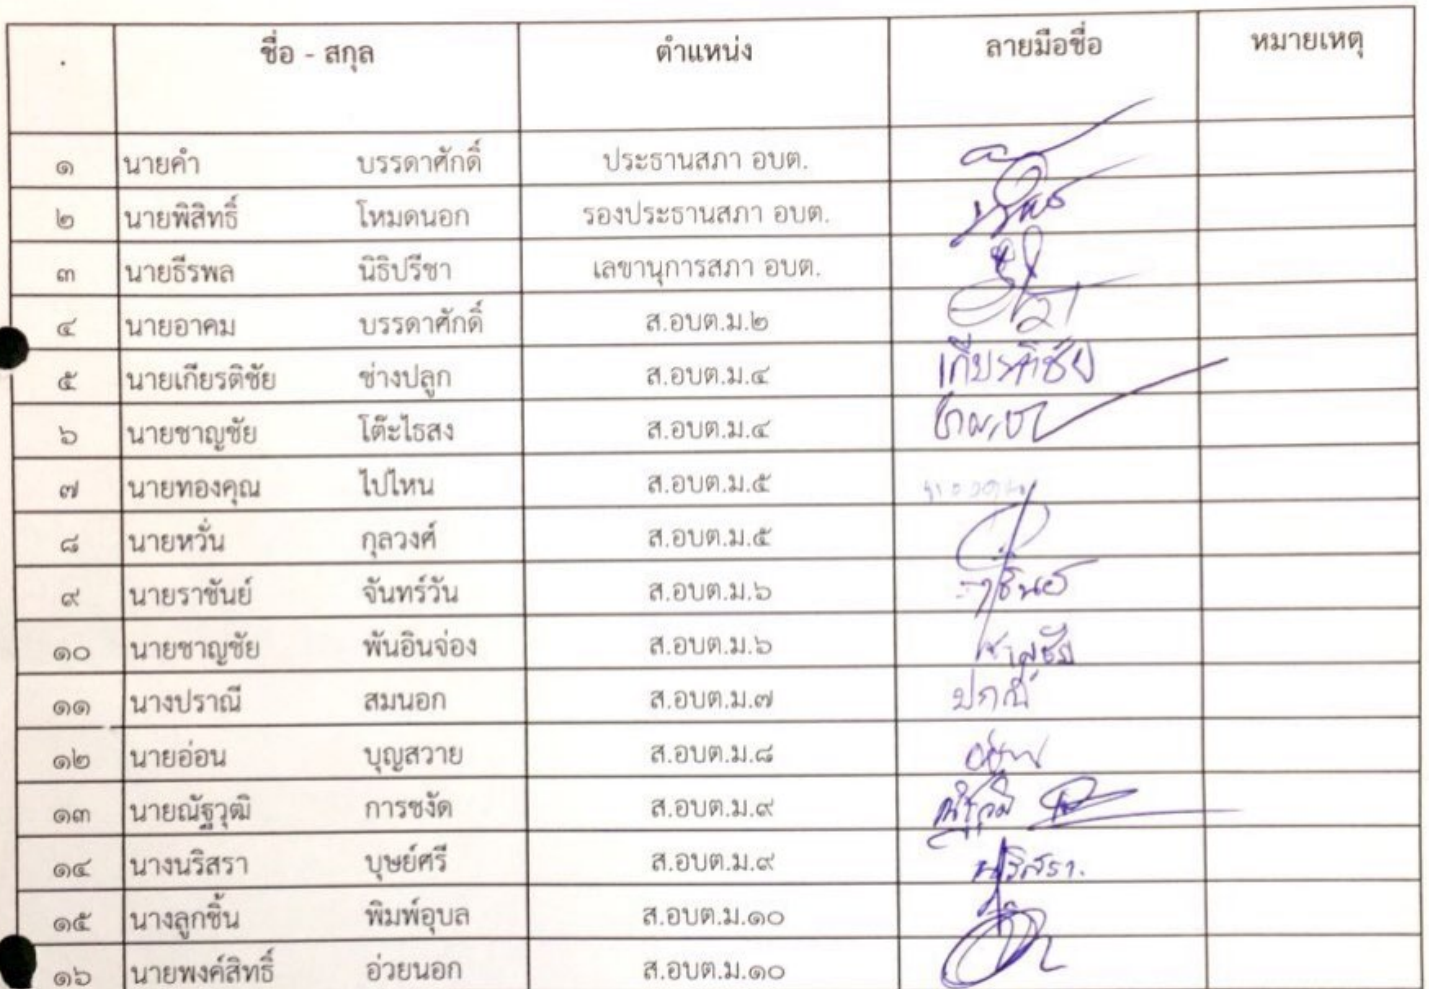 ชื่อ - สกุล ตำแหน่ง ลายมือชื่อ หมายเหตุ
๑ นายคำ บรรดาศักดิ์ ประธานสภา อบต.
๒ นายพิสิทธิ์ โหมดนอก รองประธานสภา อบต.
๓ นายธีรพล นิธิปรีชา เลขานุการสภา อบต.
๔ นายอาคม บรรดาศักดิ์ ส.อบต.ม.๒
๕ นายเกียรติชัย ช่างปลูก ส.อบต.ม.๔ เกียรติชัย
๖ นายชาญชัย โต๊ะไธสง ส.อบต.ม.๔
๗ นายทองคุณ ไปไหน ส.อบต.ม.๕
๘ นายหวั่น กุลวงศ์ ส.อบต.ม.๕
๙ นายราชันย์ จันทร์วัน ส.อบต.ม.๖
๑๐ นายชาญชัย พันอินจ่อง ส.อบต.ม.๖ ชาญชัย
๑๑ นางปราณี สมนอก ส.อบต.ม.๗ ปราณี
๑๒ นายอ่อน บุญสวาย ส.อบต.ม.๘ อ่อน
๑๓ นายณัฐวุฒิ การชงัด ส.อบต.ม.๙ ณัฐวุฒิ
๑๔ นางนริสรา บุษย์ศรี ส.อบต.ม.๙ นริสรา.
๑๕ นางลูกชิ้น พิมพ์อุบล ส.อบต.ม.๑๐
๑๖ นายพงค์สิทธิ์ อ่วยนอก ส.อบต.ม.๑๐